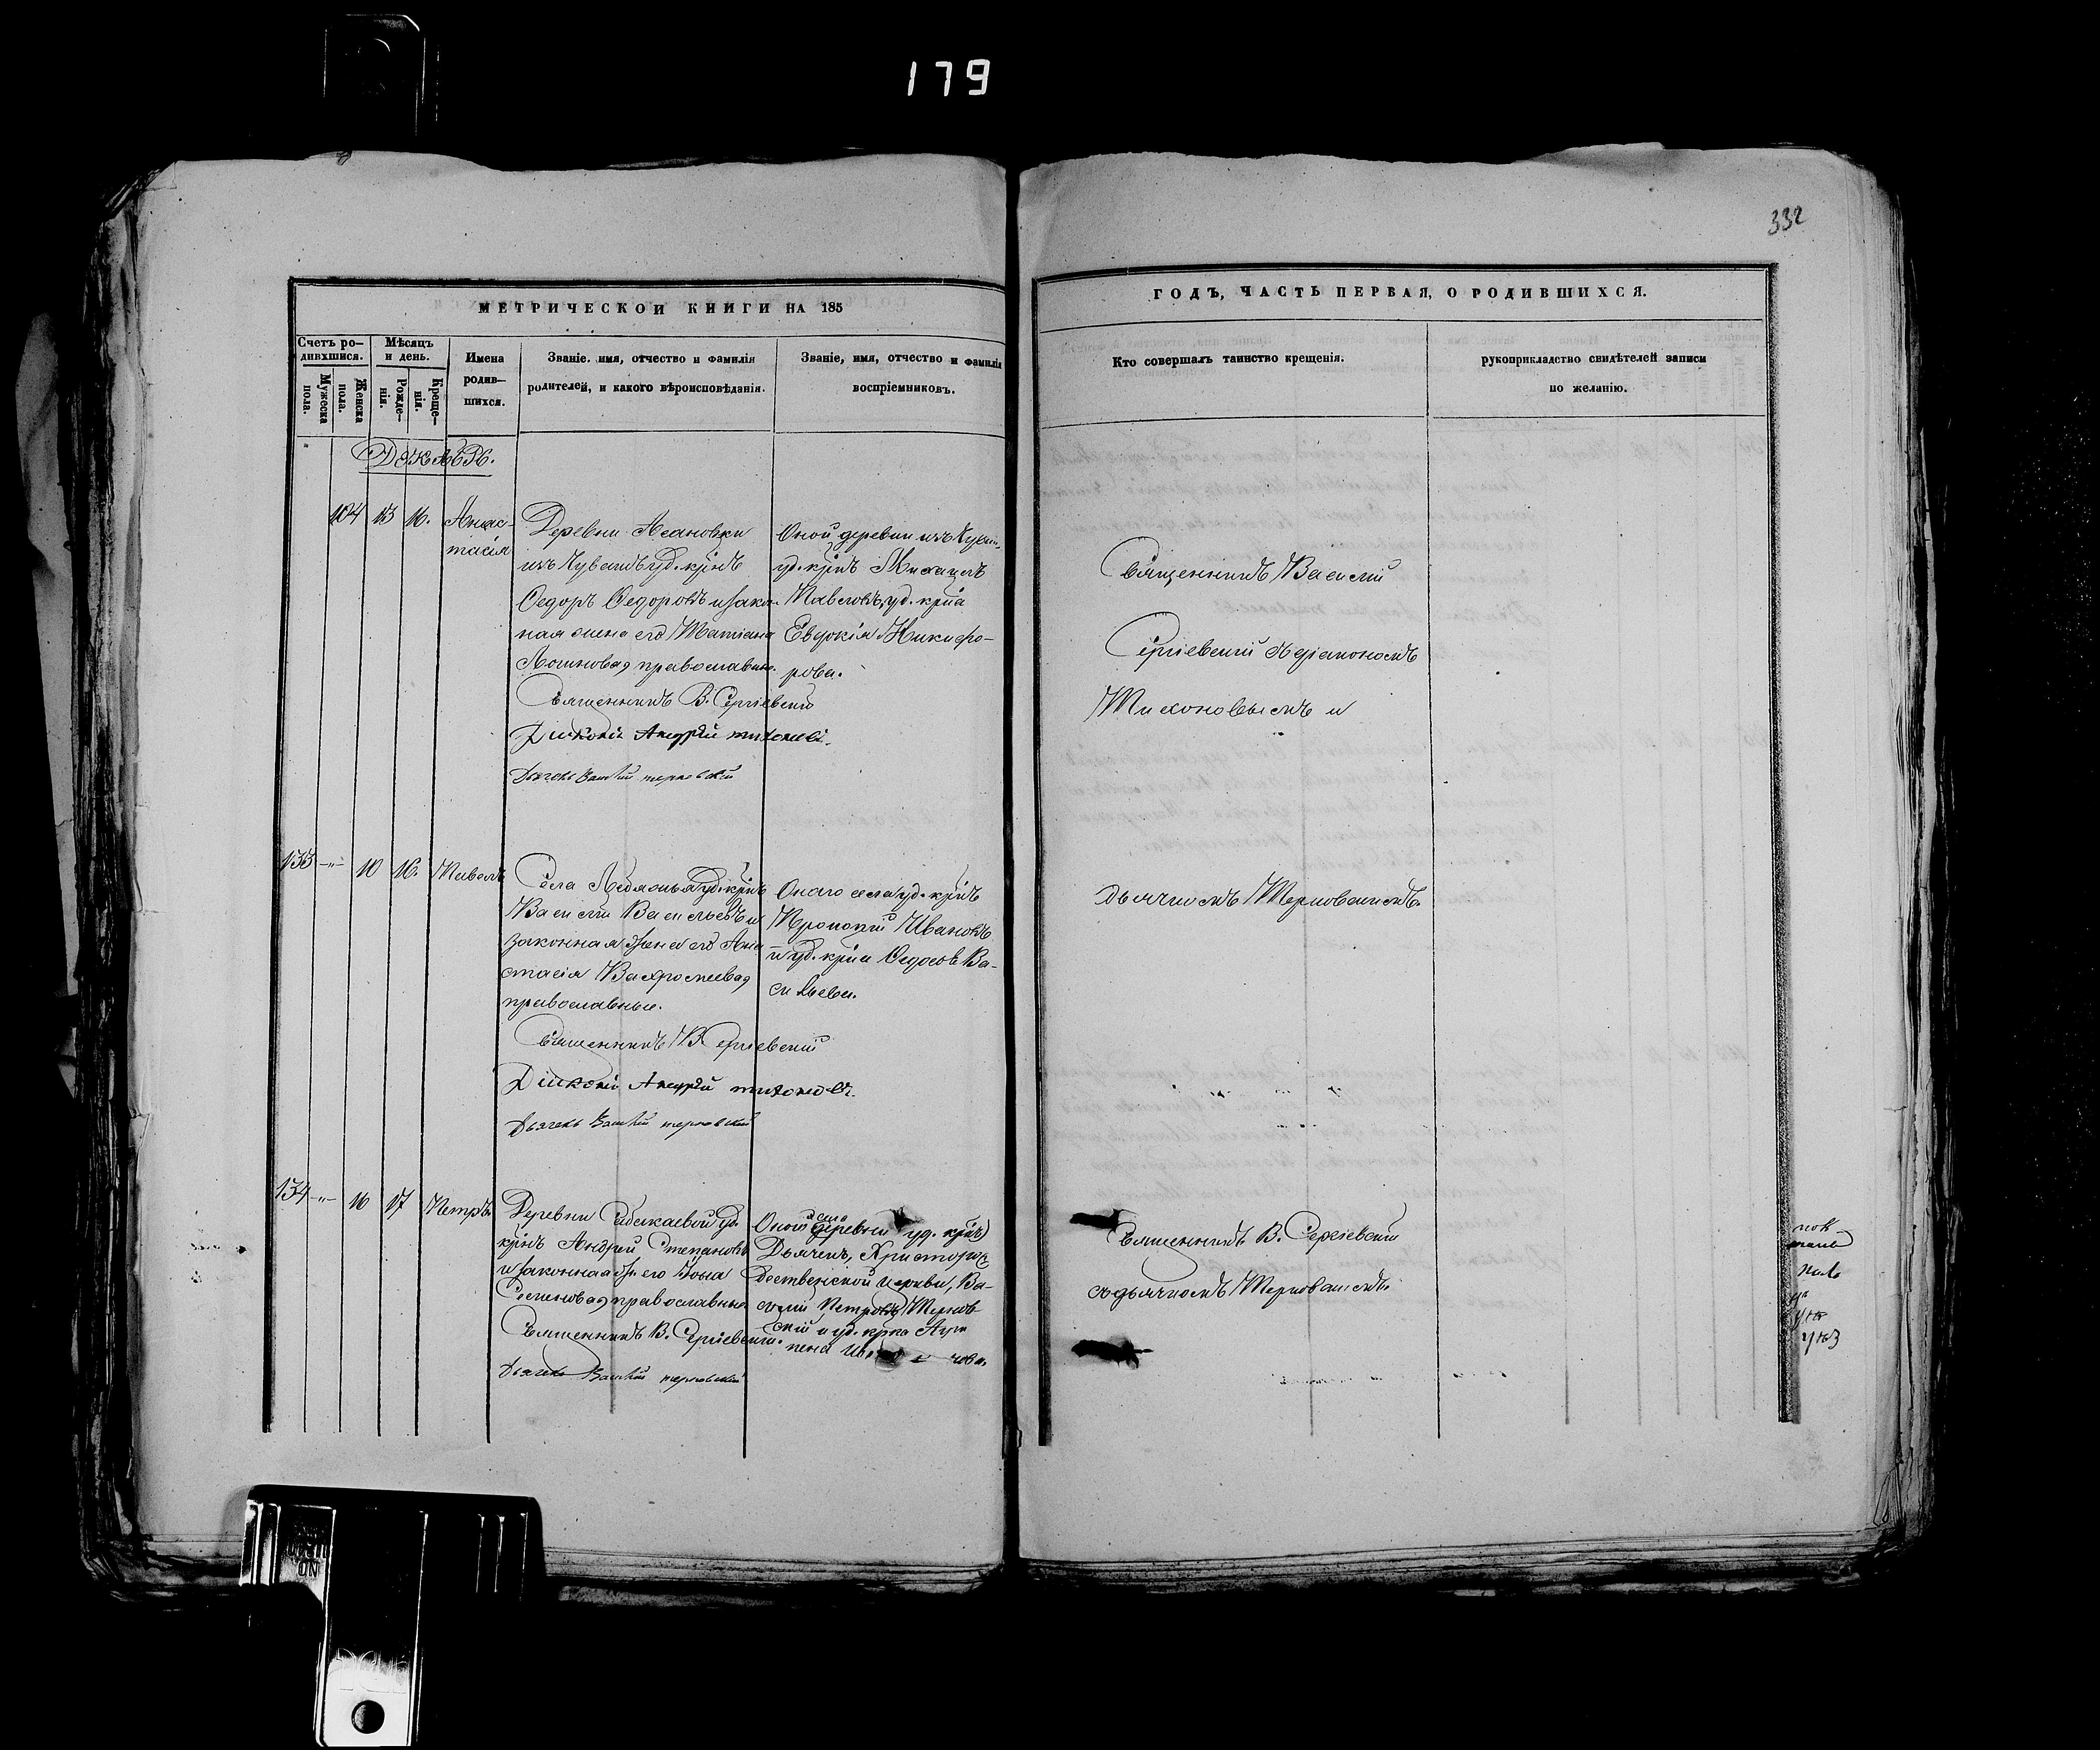 179
332
МЕТРИЧЕСКОЙ КНИГИ НА 185
ГОДЪ, ЧАСТЬ ПЕРВАЯ, О РОДИВШИХСЯ.
Счетъ ро-
дившихся.
Мужеска
пола.
Женска
пола.
Мѣсяцъ
и день.
Рожде-
нія.
Креще-
нія.
Имена
родив-
шихся.
Званіе, имя, отчество и фамилія
родителей, и какого вѣроисповѣданія.
Званіе, имя, отчество и фамилія
воспріемниковъ.
Кто совершалъ таинство крещенія.
рукоприкладство свидѣтелей записи
по желанію.
Декабрь.
104 13 16.
Анас-
тасія
Деревни Асановки
изъ Чувашъ уд. крнъ
Ѳедоръ Ѳедоровъ и закон-
ная жена его Татіана
православные.
Священникъ В. Сергіевскій
Діаконъ Андрей Тихоновъ.
Дьячекъ Василій Терновскій
Оной деревни изъ Чуваш.
уд. крнъ Михаилъ
Павловъ, уд. крна
Евдокія Никифо-
рова.
Священникъ Василій
Сергіевскій съ діакономъ
Тихоновымъ и
дьячкомъ Терновскимъ.
133 -„- 10 16. Павелъ
Села уд. крнъ
Василій Васильевъ и
законная жена его Ана-
стасія Вахромеева
православные.
Священникъ В. Сергіевскій
Діаконъ Андрей Тихоновъ.
Дьячекъ Василій Терновскій
Онаго села уд. крнъ
Прокопій Ивановъ
и уд. крна Ѳедосья Ва-
сильева.
134 -„- 16 17 Петръ.
Деревни уд.
крнъ Андрей Степановъ
и законная ж. его
Семенова православные
Священникъ В. Сергіевскій.
Дьячекъ Василій Терновскій
Оной деревни уд. крнъ
Дьячекъ, Христорож-
дественской церкви, Ва-
силій Петровъ Тернов-
скій и уд. крна
Священникъ В. Сергіевскій
съ дьячкомъ Терновскимъ